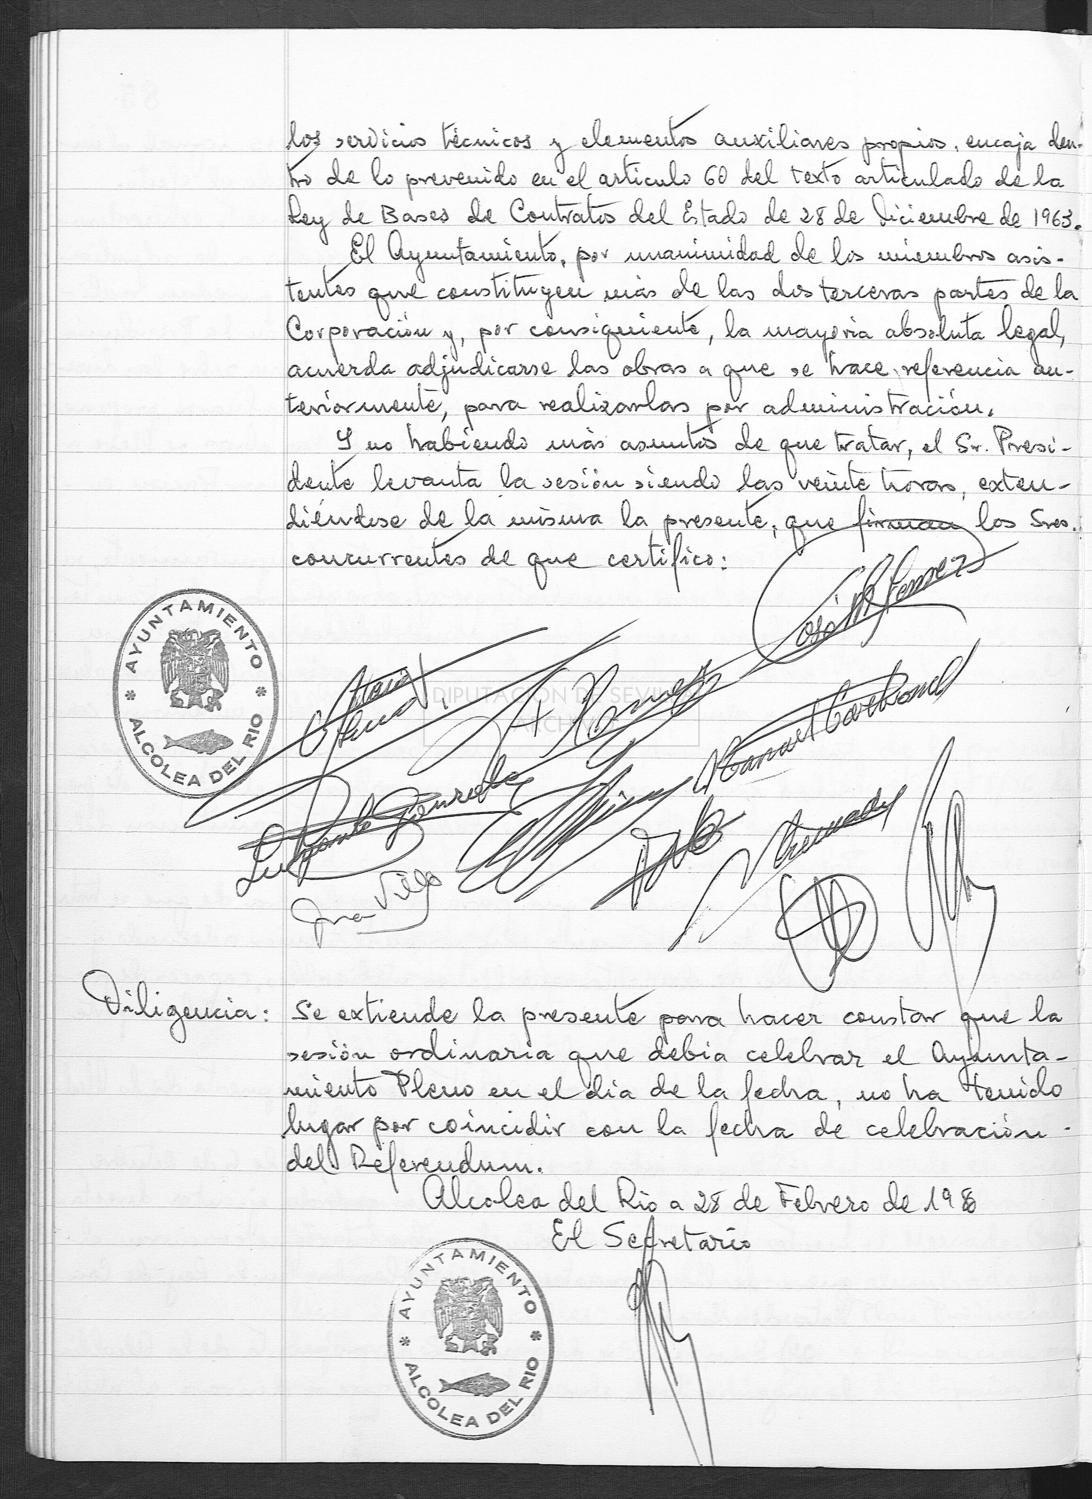 los servicios técnicos y elementos auxiliares propios, encaja den-
tro de lo prevenido en el articulo 60 del texto articulado de la
Ley de Bases de Contratos del Estado de 28 de Diciembre de 1963.
El Ayuntamiento, por unanimidad de los miembros asis-
tentes que constituyen más de las dos terceras partes de la
Corporación y, por consiguiente, la mayoria absoluta legal,
acuerda adjudicarse las obras a que se hace referencia an-
teriormente, para realizarlas por administración.
Y no habiendo más asuntos de que tratar, el Sr. Presi-
dente levanta la sesión siendo las veinte horas, exten-
diéndose de la misma la presente, que firman los Sres.
concurrentes de que certifico:
AYUNTAMIENTO
* ALCOLEA DEL RIO *
DIPUTACIÓN DE SEVILLA
Manuel Carbonell
Diligencia: Se extiende la presente para hacer constar que la
sesión ordinaria que debia celebrar el Ayunta-
miento Pleno en el dia de la fecha, no ha tenido
lugar por coincidir con la fecha de celebración
del Referendum.
Alcolea del Rio a 28 de Febrero de 198
El Secretario
AYUNTAMIENTO
* ALCOLEA DEL RIO *